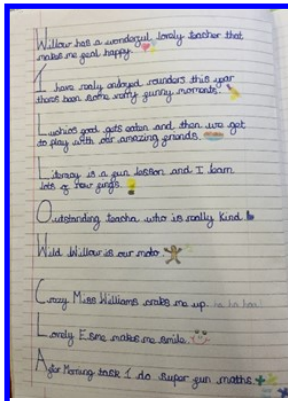 Willow has a wonderful lovely teacher that
makes me geal happy.
I have realy enloyed rounders this year
thers been some really gunny moments!
Luchies good gets eaten and then we get
to play with our amazing griends.
Literacy is a gun lesson and I learn
lots of new gings.
Outstanding teacha who is really kind
Wild Willow is our moto.
Crazy Miss Williams craks me up. ha ha haa!
Lovely Esme makes me smile.
After Morning task I do super gun maths.